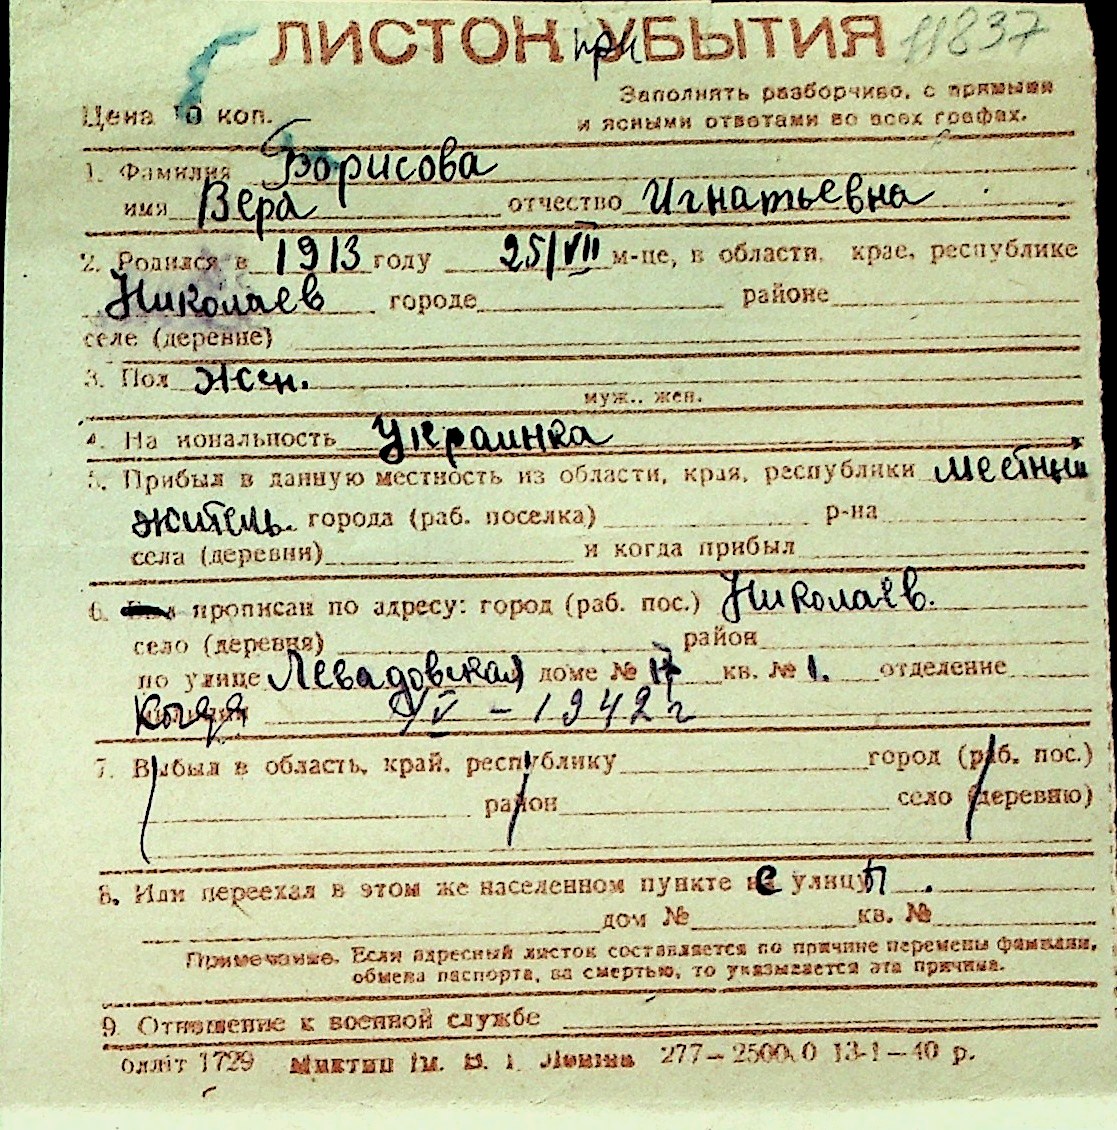 ЛИСТОК приУБЫТИЯ 11837
Заполнять разборчиво, с прямыми
Цена 10 коп. и ясными ответами во всех графах.
1. Фамилия Борисова
имя Вера отчество Игнатьевна
2. Родился в 1913 году 25/VII м-це, в области, крае, республике
Николаев городе районе
селе (деревне)
3. Пол жен.
муж., жен.
4. На иональность Украинка
5. Прибыл в данную местность из области, края, республики местный
житель. города (раб. поселка) р-на
села (деревни) и когда прибыл
6. прописан по адресу: город (раб. пос.) Николаев.
село (деревня) район
по улице Левадовская доме № 17 кв. № 1. отделение
Когда V – 1942 г
7. Выбыл в область, край, республику город (раб. пос.)
район село (деревню)
8. Или переехал в этом же населенном пункте с улицы .
дом № кв. №
Примечание. Если адресный листок составляется по причине перемены фамилии,
обмена паспорта, за смертью, то указывается эта причина.
9. Отношение к военной службе
Олліт 1729 Миктип ім. В. І. Леніна 277–2500.0 13-1–40 р.